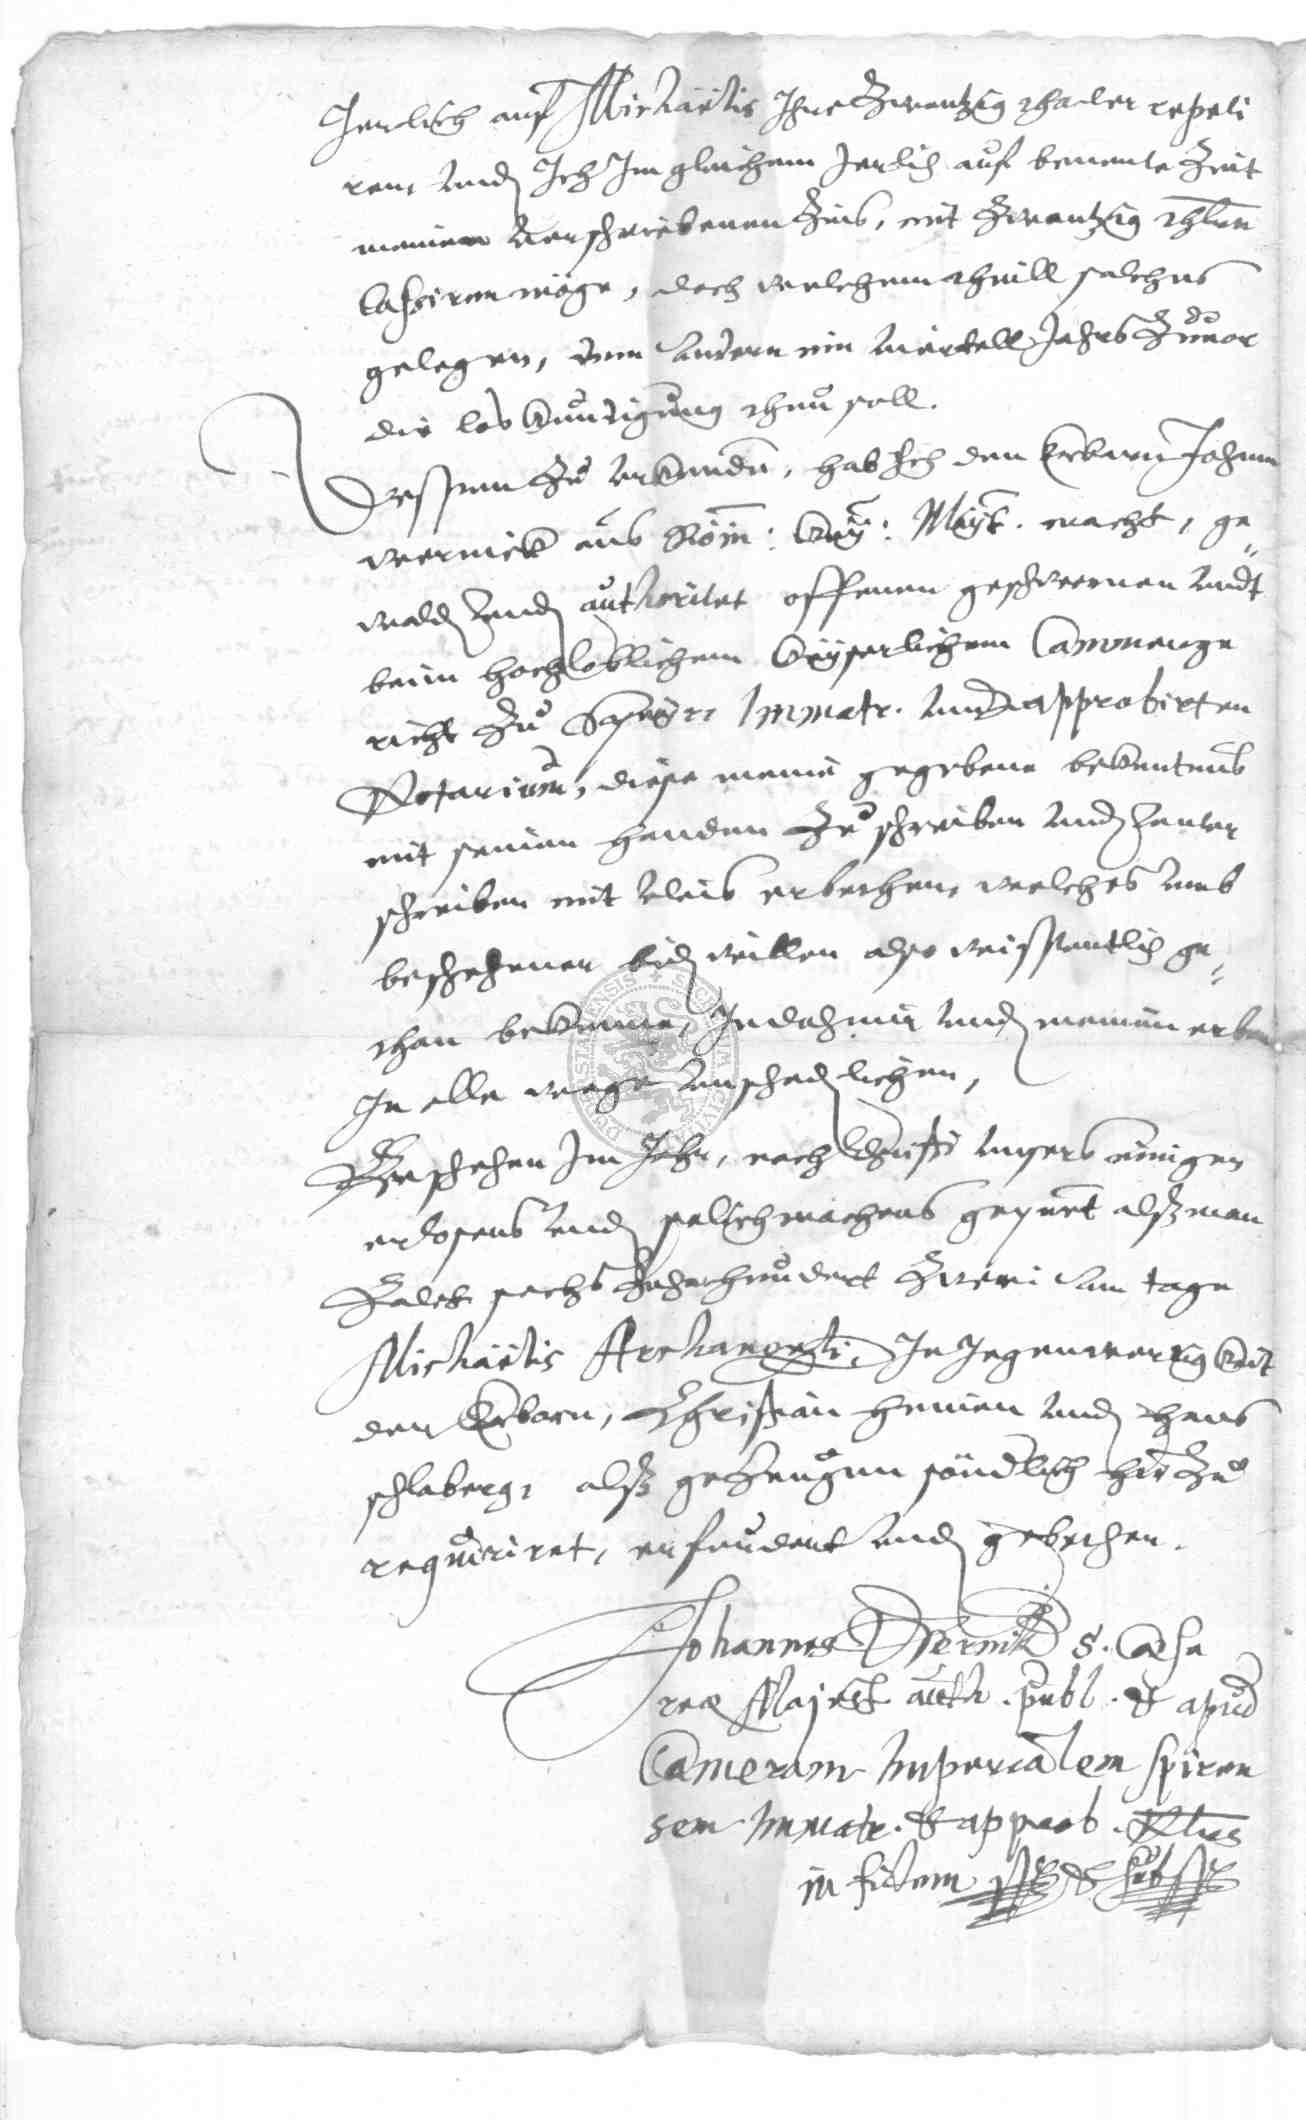 Jerlich auf Michaelis Ihre Zwentzig thaler repeti
ren, undt Ich Im gleichem Jerlich auf benente Zeit
meinen verschriebenen Zins, mit Zwentzig
cassiren möge, doch welchem theill solchens
gelegen, dem andern ein viertell Jahrs Zuvor
die loskundigung thun soll.
Dessen Zu urkundt, hab Ich den Erbarn Johann
wernick aus Röm: Key: Mayt. macht, ge„
waldt undt authoritet offenen geschwornen undt
beim hochloblichem Keyserlichem Cammerge
richt Zu Speyer Immatr. undt approbirten
Notarium, diese meine gegebene bekentnus
mit seinen handen Zu schreiben undt unter
schreiben mit vleis erbethen, welches umb
beschehener bidt willen also wissentlich ge„
than bekenne, Jedoch mir undt meinen erben
In alle wege unschedtlichen,
Geschehen Im Jahr, nach Christi unsers einigen
erlosers undt selichmachers gepurt alß man
Zalet sechs Zehenhundert Zwei am tage
Michaelis Archangeli, In Jegenwertigkeit
der Erbarn, Christian undt
schlaberg, alß geZeugen hir Zu
requiriret, erfoddert undt gebethen.
Johannes Wernick S. Caesa
reae Majest auth. publ. & apud
Cameram Imperialem Spiren
sem Immatr. & approb. Nrius
in fidem sst & subsst